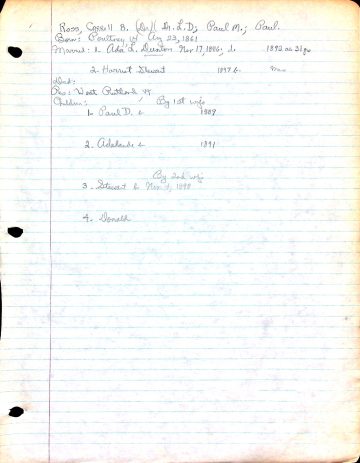 Ross, Correll B. (Dr.) Dr. L.D; Paul M.; Paul.
Born: Poultney Vt Aug 23, 1861
Married: 1- Ada L. Nov 17, 1886. d. 1892 ae 31
2- Harriet Stewart 1897
Died:
Res: West Rutland Vt
Children: By 1st wife
1- Paul D. b 1889
2. Adelaide b 1891
By 2nd wife
3. Stewart b Nov 1898
4. Donald